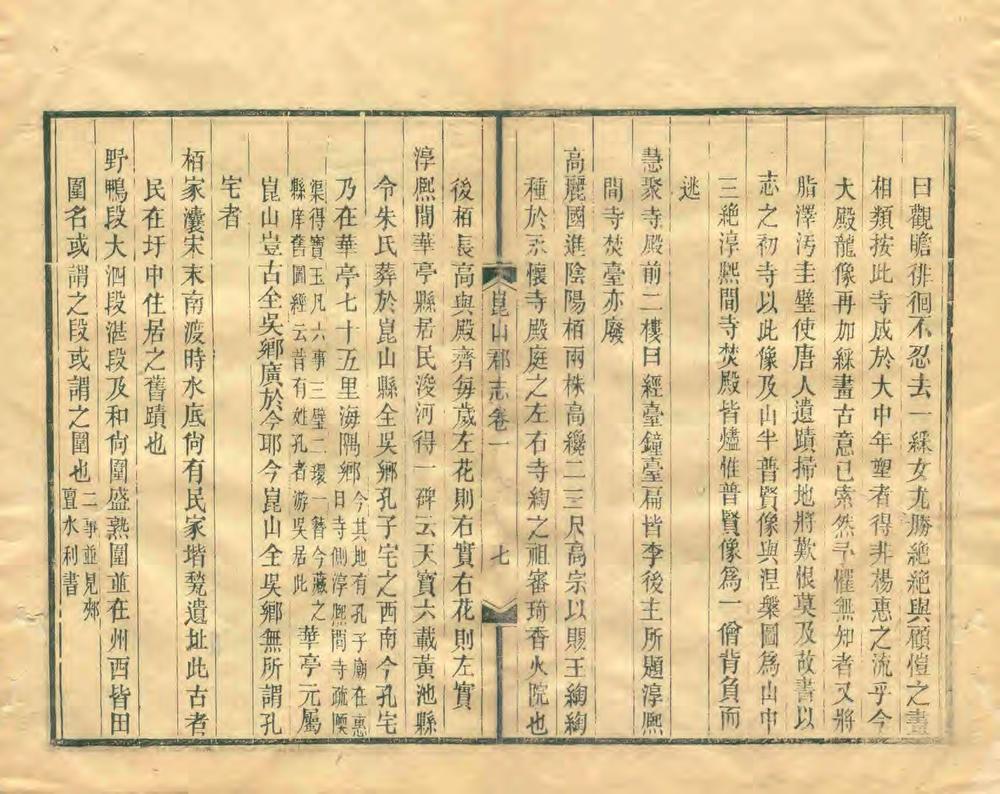 曰觀瞻徘徊不忍去一綵女尤勝絶絶與顧愷之畫
相類按此寺成於大中年塑者得非楊惠之流乎今
大殿龍像再加綵畫古意已索然予懼無知者又將
脂澤汚圭壁使唐人遺蹟掃地將歎恨莫及故書以
志之初寺以此像及山半普賢像與涅槃圖爲山中
三絶淳熙間寺焚殿皆燼惟普賢像爲一僧背負而
逃
慧聚寺殿前二樓曰經臺鐘臺扁皆李後主所題淳熙
間寺焚臺亦廢
高麗國進陰陽栢兩株高纔二三尺高宗以賜王綯綯
種於懷寺殿庭之左右寺綯之祖審琦香火院也
崑山郡志卷一
七
後栢長高與殿齊每歲左花則右實右花則左實
淳熙間華亭縣居民浚河得一碑云天寶六載黃池縣
令朱氏葬於崑山縣全吳鄉孔子宅之西南今孔宅
乃在華亭七十五里海隅鄉今其地有孔子廟在惠
日寺側淳熙間寺疏
渠得寶玉凡六事三璧二環一簪今藏之
縣庠舊圖經云昔有姓孔者游吳居此
華亭元屬
崑山豈古全吳鄉廣於今耶今崑山全吳鄉無所謂孔
宅者
栢家瀼宋末南渡時水底尚有民家堦甃遺址此古者
民在圩中住居之舊蹟也
野鴨段大泗段湛段及和尚圍盛熟圍並在州西皆田
圍名或謂之段或謂之圍也二事並見郟
亶水利書